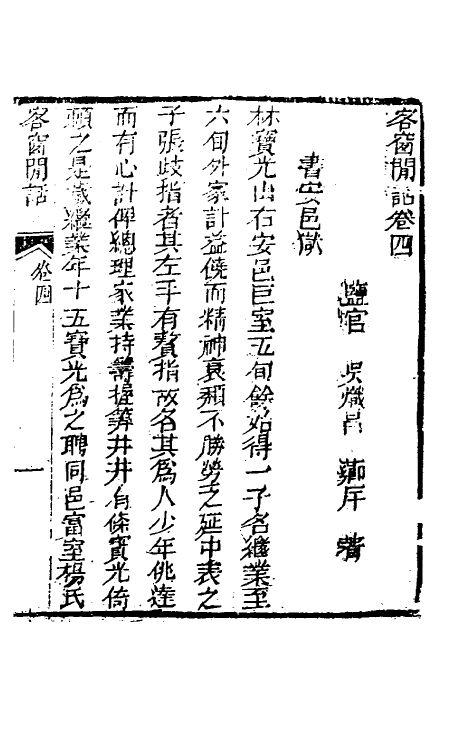 客窗閒話卷四
鹽官 吳熾昌 薌厈 著
書安邑獄
林寶光山右安邑巨室五旬餘始得一子名繼業至
六旬外家計益饒而精神衰頹不勝勞乏延中表之
子張歧指者其左手有贅指故名其為人少年佻達
而有心計俾總理家業持籌握算井井有條寶光倚
賴之是歲繼業年十五寶光為之聘同邑富室楊氏
客窗閒話
卷四
一